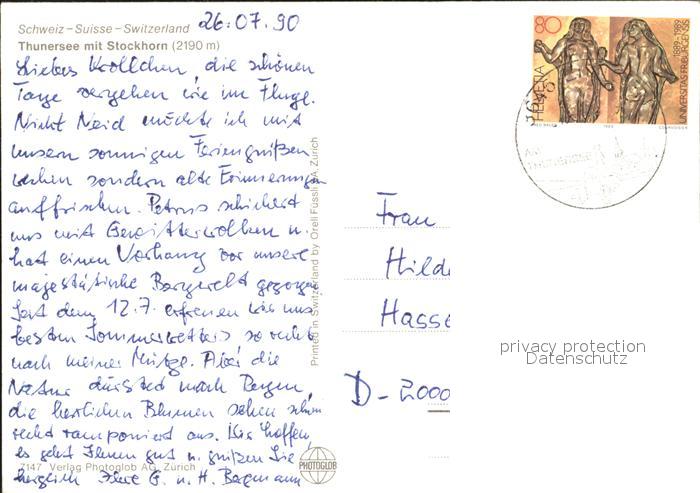 Schweiz-Suisse-Switzerland 26.07.90
Thunersee mit Stockhorn (2190 m)
Liebes Röllchen, die schönen
Tage vergehen wie im Fluge.
Nicht Neid möchte ich mit
unseren sonnigen Feriengrüßen
wecken sondern alte Erinnerungen
auffrischen. Petrus schickerst
uns mit Gewitterwolken u.
hat einen Vorhang vor unsere
majestätische Bergwelt gezogen.
Seit dem 12.7. erfreuen wir uns
besten Sommerwetters so recht
nach meiner Mütze. Aber die
Natur dürstet nach Regen,
die herrlichen Blumen sehen schon
recht ramponiert aus. Wir hoffen,
es geht Ihnen gut u. grüßen Sie
herzlich Ihre G. u. H. Bergmann
7147 Verlag Photoglob AG, Zürich
Printed in Switzerland by Orell Füssli AG, Zürich
PHOTOGLOB
80
HELVETIA
1889-1989
UNIVERSITAS FRIBURGENSIS
1989
COURVOISIER
Frau
Hilde
Hasse
D-2000
privacy protection
Datenschutz